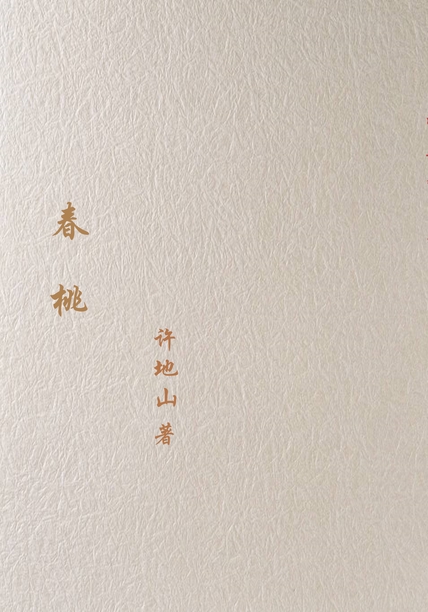 春桃
许地山 著